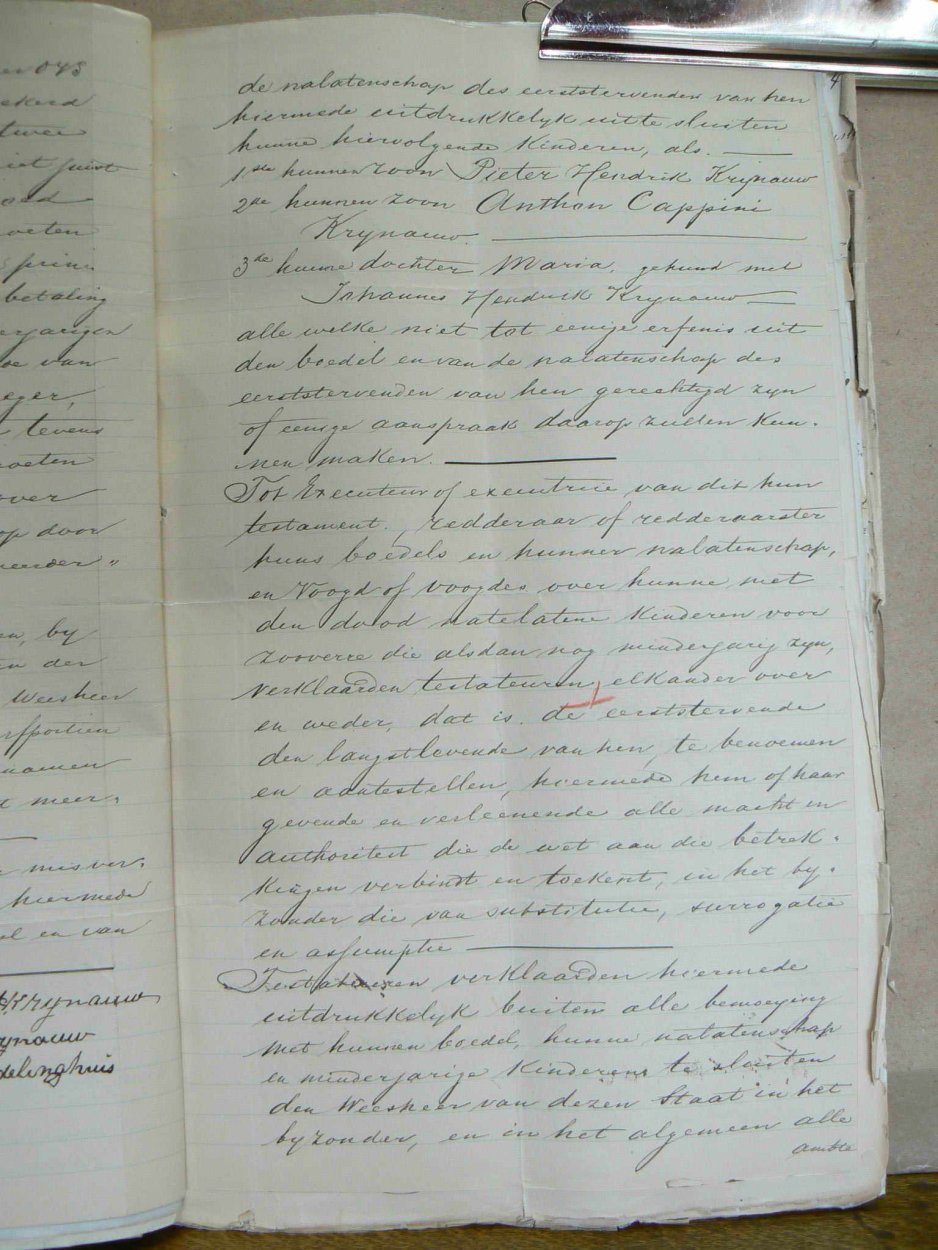 ekerd
twee
iet juist
oed
oeten
betaling
erjarigen
oe van
eger,
tevens
oeten
over
op door
eerder"
en, by
in der
Weesheer
rfportien
namen
t meer,
misver,
hiermede
el en van
Krynauw
ynauw
delinghuis
4
de nalatenschap des eerststervenden van hen
hiermede uitdrukkelyk uit te sluiten
hunne hiervolgende Kinderen, als.
1ste hunnen Zoon Pieter Hendrik Krijnauw
2de hunnen Zoon Anthon Cappini
Krynauw.
3de hunne dochter Maria, gehuwd met
Johannes Hendrik Krynauw
alle welke niet tot eenige erfenis uit
den boedel en van de nalatenschap des
eerststervenden van hen gerechtigd zyn
of eenige aanspraak daarop zullen Kun-
nen maken.
Tot Executeur of executrice van dit hun
testament, redderaar of redderaarster
huns boedels en hunner nalatenschap,
en Voogd of voogdes over hunne met
den dood natelatene Kinderen voor
zooverre die alsdan nog minderjarig zyn,
verklaarden testateuren, elkander over
en weder, dat is de eerststervende
den langstlevende van hen, te benoemen
en aantestellen, hiermede hem of haar
gevende en verleenende alle macht en
authoriteit die de wet aan die betrek-
Kingen verbindt en toekent, in het by-
zonder die van substitutie, surrogatie
en assumptie
Testateuren verklaarden hiermede
uitdrukkelyk buiten alle bemoeying
met hunnen boedel, hunne nalatenschap
en minderjarige Kinderen te sluiten
den Weesheer van dezen Staat in het
byzonder, en in het algemeen alle
ambte